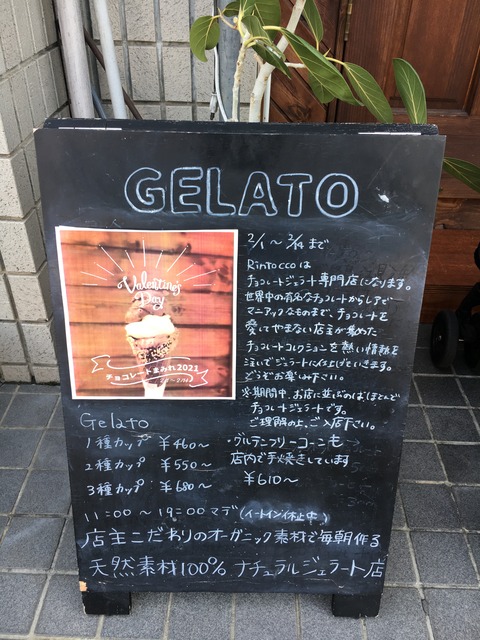 GELATO
2/1～2/14まで
Rintoccoは
チョコレートジェラート専門店になります。
世界中の有名なチョコレートからレアで
マニアックなものまで、チョコレートを
愛してやまない店主が集めた
チョコレートコレクションを熱い情熱を
注いでジェラートに仕上げていきます。
どうぞお楽しみ下さい。
※期間中、お店に並ぶのはほとんど
チョコレートジェラートです。
ご理解の上、ご入店下さい。
Valentine's
Day
チョコレートまみれ2021
2/1～2/14
Gelato
1種カップ ￥460～
2種カップ ￥550～
3種カップ ￥680～
・グルテンフリーコーンも
店内で手焼きしています
￥610～
11:00～19:00マデ(イートイン休止中)
店主こだわりのオーガニック素材で毎朝作る
天然素材100% ナチュラルジェラートノ店